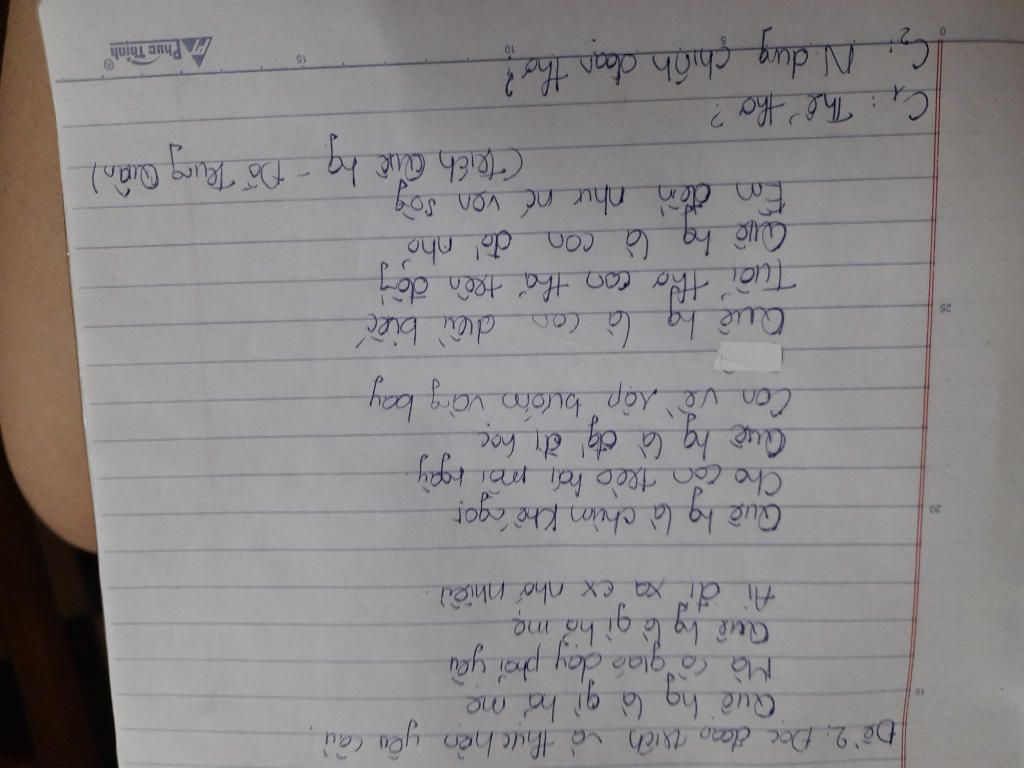 Đề 2: Đọc đoạn trích và thực hiện yêu cầu.
Quê hg là gì hả mẹ
Mà cô giáo dạy phải yêu
Quê hg là gì hả mẹ
Ai đi xa cx nhớ nhiều.
Quê hg là chùm khế ngọt
Cho con trèo hái mỗi ngày
Quê hg là đg đi học
Con về rợp bướm vàng bay
Quê hg là con diều biếc
Tuổi thơ con thả trên đồng
Quê hg là con đò nhỏ
Êm đềm
(Trích Quê hg - Đỗ Trung Quân)
C1: Thể thơ?
C2: N dung chính đoạn thơ?
0 5 10 15
15
20
25
Phuc Thinh®